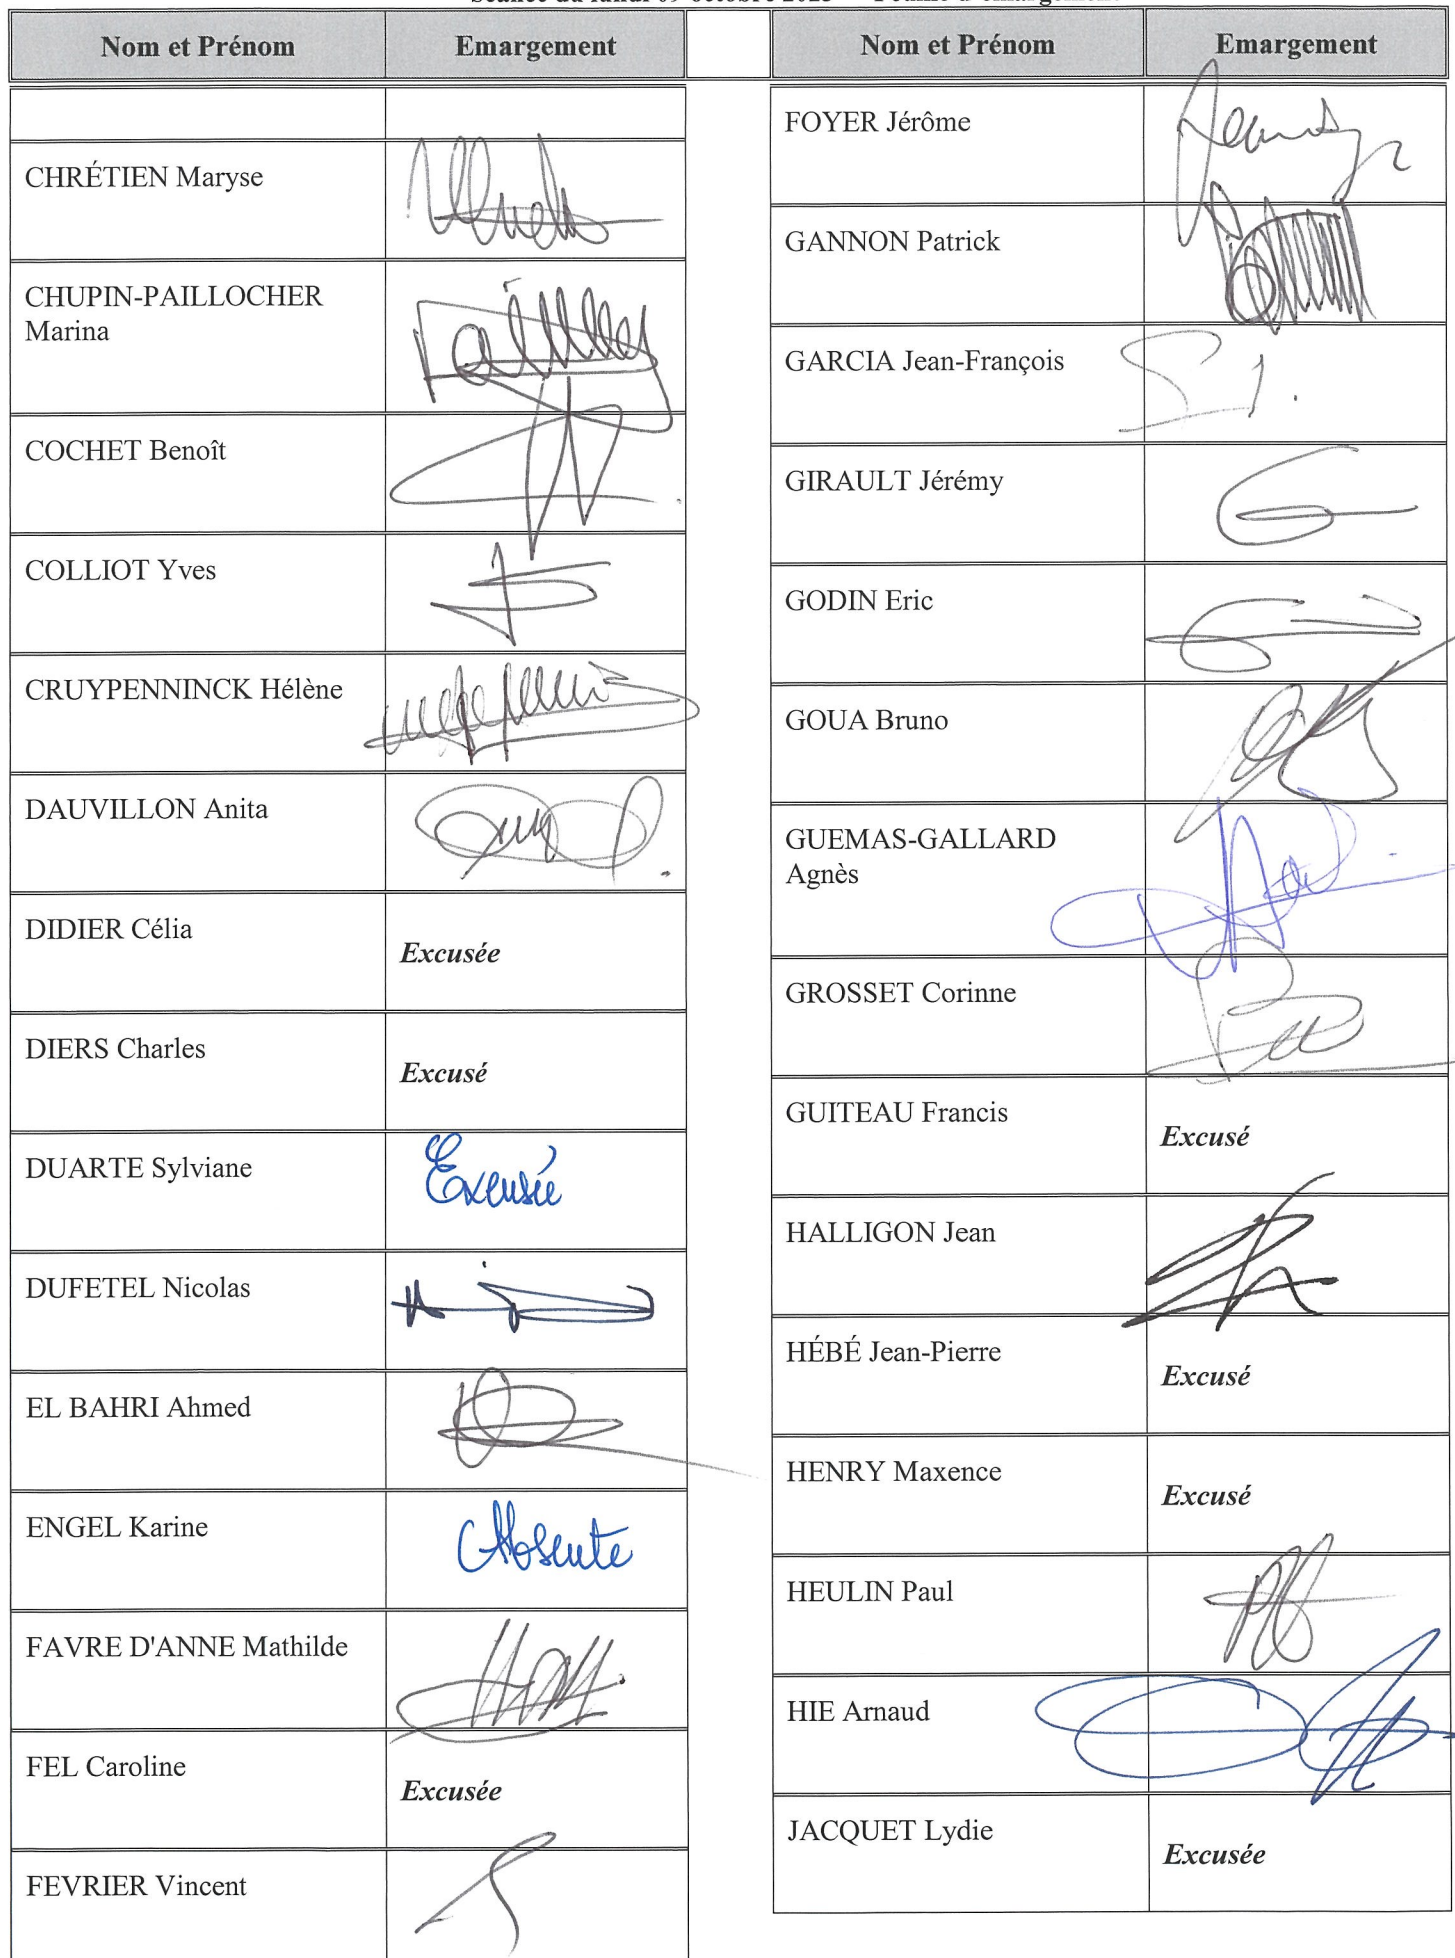 Nom et Prénom Emargement
CHRÉTIEN Maryse
CHUPIN-PAILLOCHER
Marina
COCHET Benoît
COLLIOT Yves
CRUYPENNINCK Hélène
DAUVILLON Anita
DIDIER Célia
Excusée
DIERS Charles
Excusé
DUARTE Sylviane
Excusée
DUFETEL Nicolas
EL BAHRI Ahmed
ENGEL Karine
Absente
FAVRE D'ANNE Mathilde
FEL Caroline
Excusée
FEVRIER Vincent
Nom et Prénom Emargement
FOYER Jérôme
GANNON Patrick
GARCIA Jean-François
GIRAULT Jérémy
GODIN Eric
GOUA Bruno
GUEMAS-GALLARD
Agnès
GROSSET Corinne
GUITEAU Francis
Excusé
HALLIGON Jean
HÉBÉ Jean-Pierre
Excusé
HENRY Maxence
Excusé
HEULIN Paul
HIE Arnaud
JACQUET Lydie
Excusée